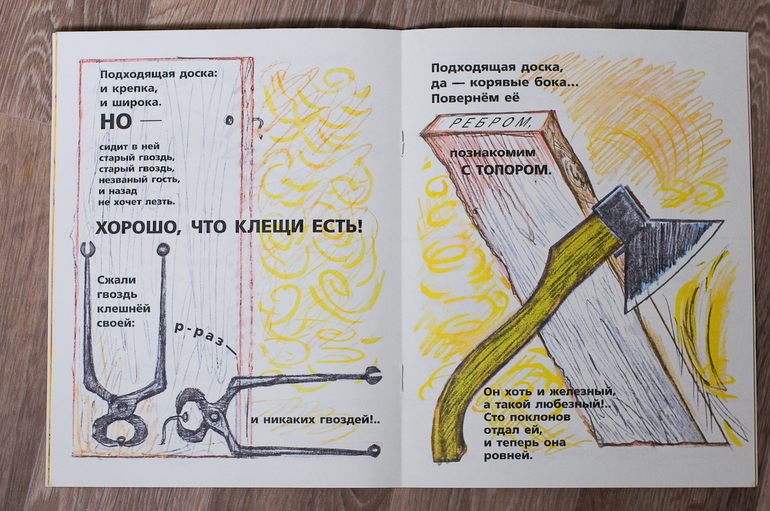 Подходящая доска:
и крепка,
и широка.
НО —
сидит в ней
старый гвоздь,
старый гвоздь,
незваный гость,
и назад
не хочет лезть.
ХОРОШО, ЧТО КЛЕЩИ ЕСТЬ!
Сжали
гвоздь
клешнёй
своей:
р-раз—
и никаких гвоздей!..
Подходящая доска,
да — корявые бока...
Повернём её
РЕБРОМ,
познакомим
С ТОПОРОМ.
Он хоть и железный,
а такой любезный!..
Сто поклонов
отдал ей,
и теперь она
ровней.